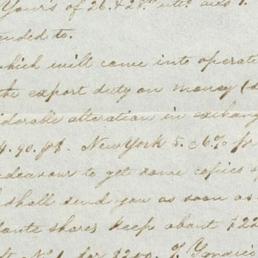 Yours of 26. & 28th inst.
ended to.
which will come into operat
the export duty on money
iderable alteration in exchang
4.90. pf. New York 5. ½% for
endeavour to get some copies o
I shall send you as soon as
dante shares keeps about $22
for $200. J.